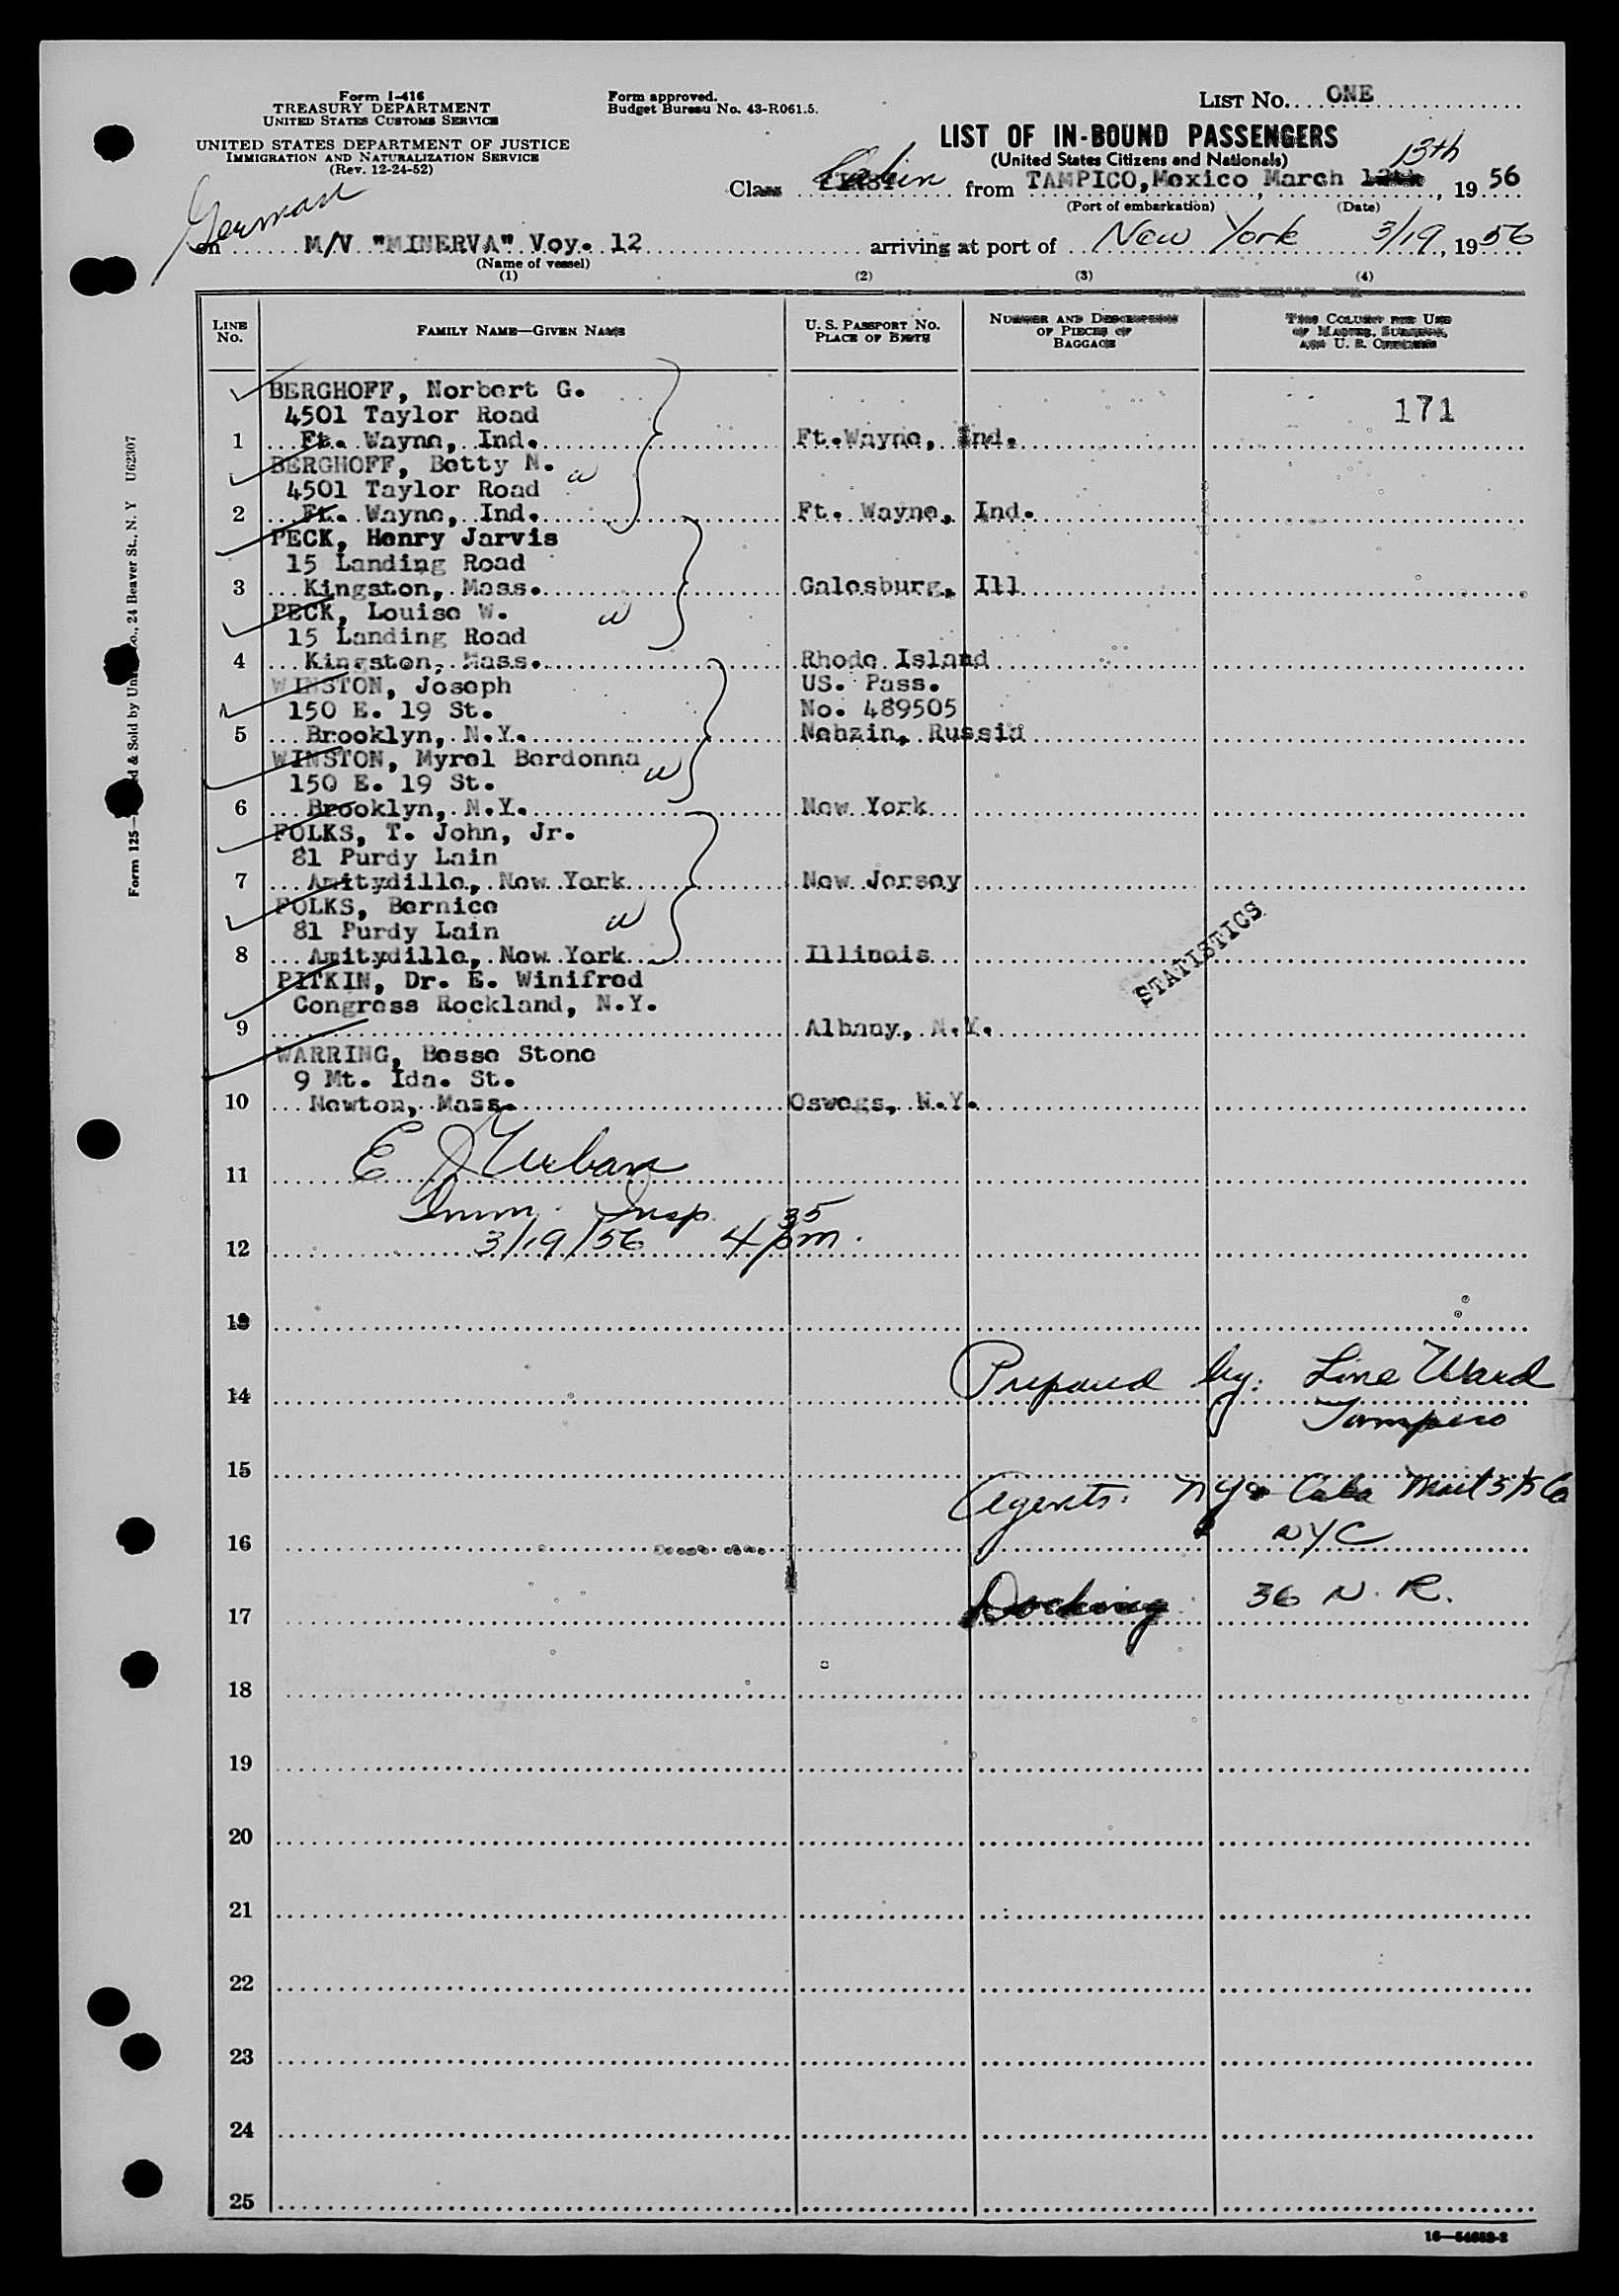 Form I-416
TREASURY DEPARTMENT
UNITED STATES CUSTOMS SERVICE
UNITED STATES DEPARTMENT OF JUSTICE
IMMIGRATION AND NATURALIZATION SERVICE
(Rev. 12-24-52)
Form approved.
Budget Bureau No. 43-R061.5.
LIST NO. ONE
LIST OF IN-BOUND PASSENGERS
(United States Citizens and Nationals)
13th
Class Cabin from TAMPICO, Mexico March 12th, 19 56
(Port of embarkation) (Date)
German
on M/V "MINERVA" Voy. 12 arriving at port of New York 3/19, 19 56
(Name of vessel)
(1) (2) (3) (4)
LINE NO.
FAMILY NAME—GIVEN NAME
U. S. PASSPORT NO.
PLACE OF BIRTH
NUMBER AND DESCRIPTION
OF PIECES OF
BAGGAGE
THIS COLUMN FOR USE
OF MASTER, SURGEON,
AND U. S. OFFICERS
BERGHOFF, Norbert G.
4501 Taylor Road 171
1 Ft. Wayne, Ind. Ft.Wayne, Ind.
BERGHOFF, Betty N. w
4501 Taylor Road
2 Ft. Wayne, Ind. Ft. Wayne, Ind.
PECK, Henry Jarvis
15 Landing Road
3 Kingston, Mass. Galesburg, Ill
PECK, Louise W. w
15 Landing Road
4 Kingston, Mass. Rhode Island
WINSTON, Joseph US. Pass.
150 E. 19 St. No. 489505
5 Brooklyn, N.Y. Nehzin, Russia
WINSTON, Myrel Bordonna w
150 E. 19 St.
6 Brooklyn, N.Y. New York
FOLKS, T. John, Jr.
81 Purdy Lain
7 Amitydille, New York New Jersey
FOLKS, Bernice w
81 Purdy Lain
8 Amitydille, New York Illinois
STATISTICS
PITKIN, Dr. E. Winifred
Congress Rockland, N.Y.
9 Albany, N.Y.
WARRING, Besse Stone
9 Mt. Ida. St.
10 Newton, Mass. Oswegs, N.Y.
E J Urban
11
Imm. Insp. 35
12 3/19/56 4 pm.
13
Prepared by: Line Ward
14
Tampico
15
Agents: NY & Cuba Mail S/S Co
NYC
16
Docking 36 N. R.
17
18
19
20
21
22
23
24
25
24 Beaver St., N. Y U62307
16—54682-2